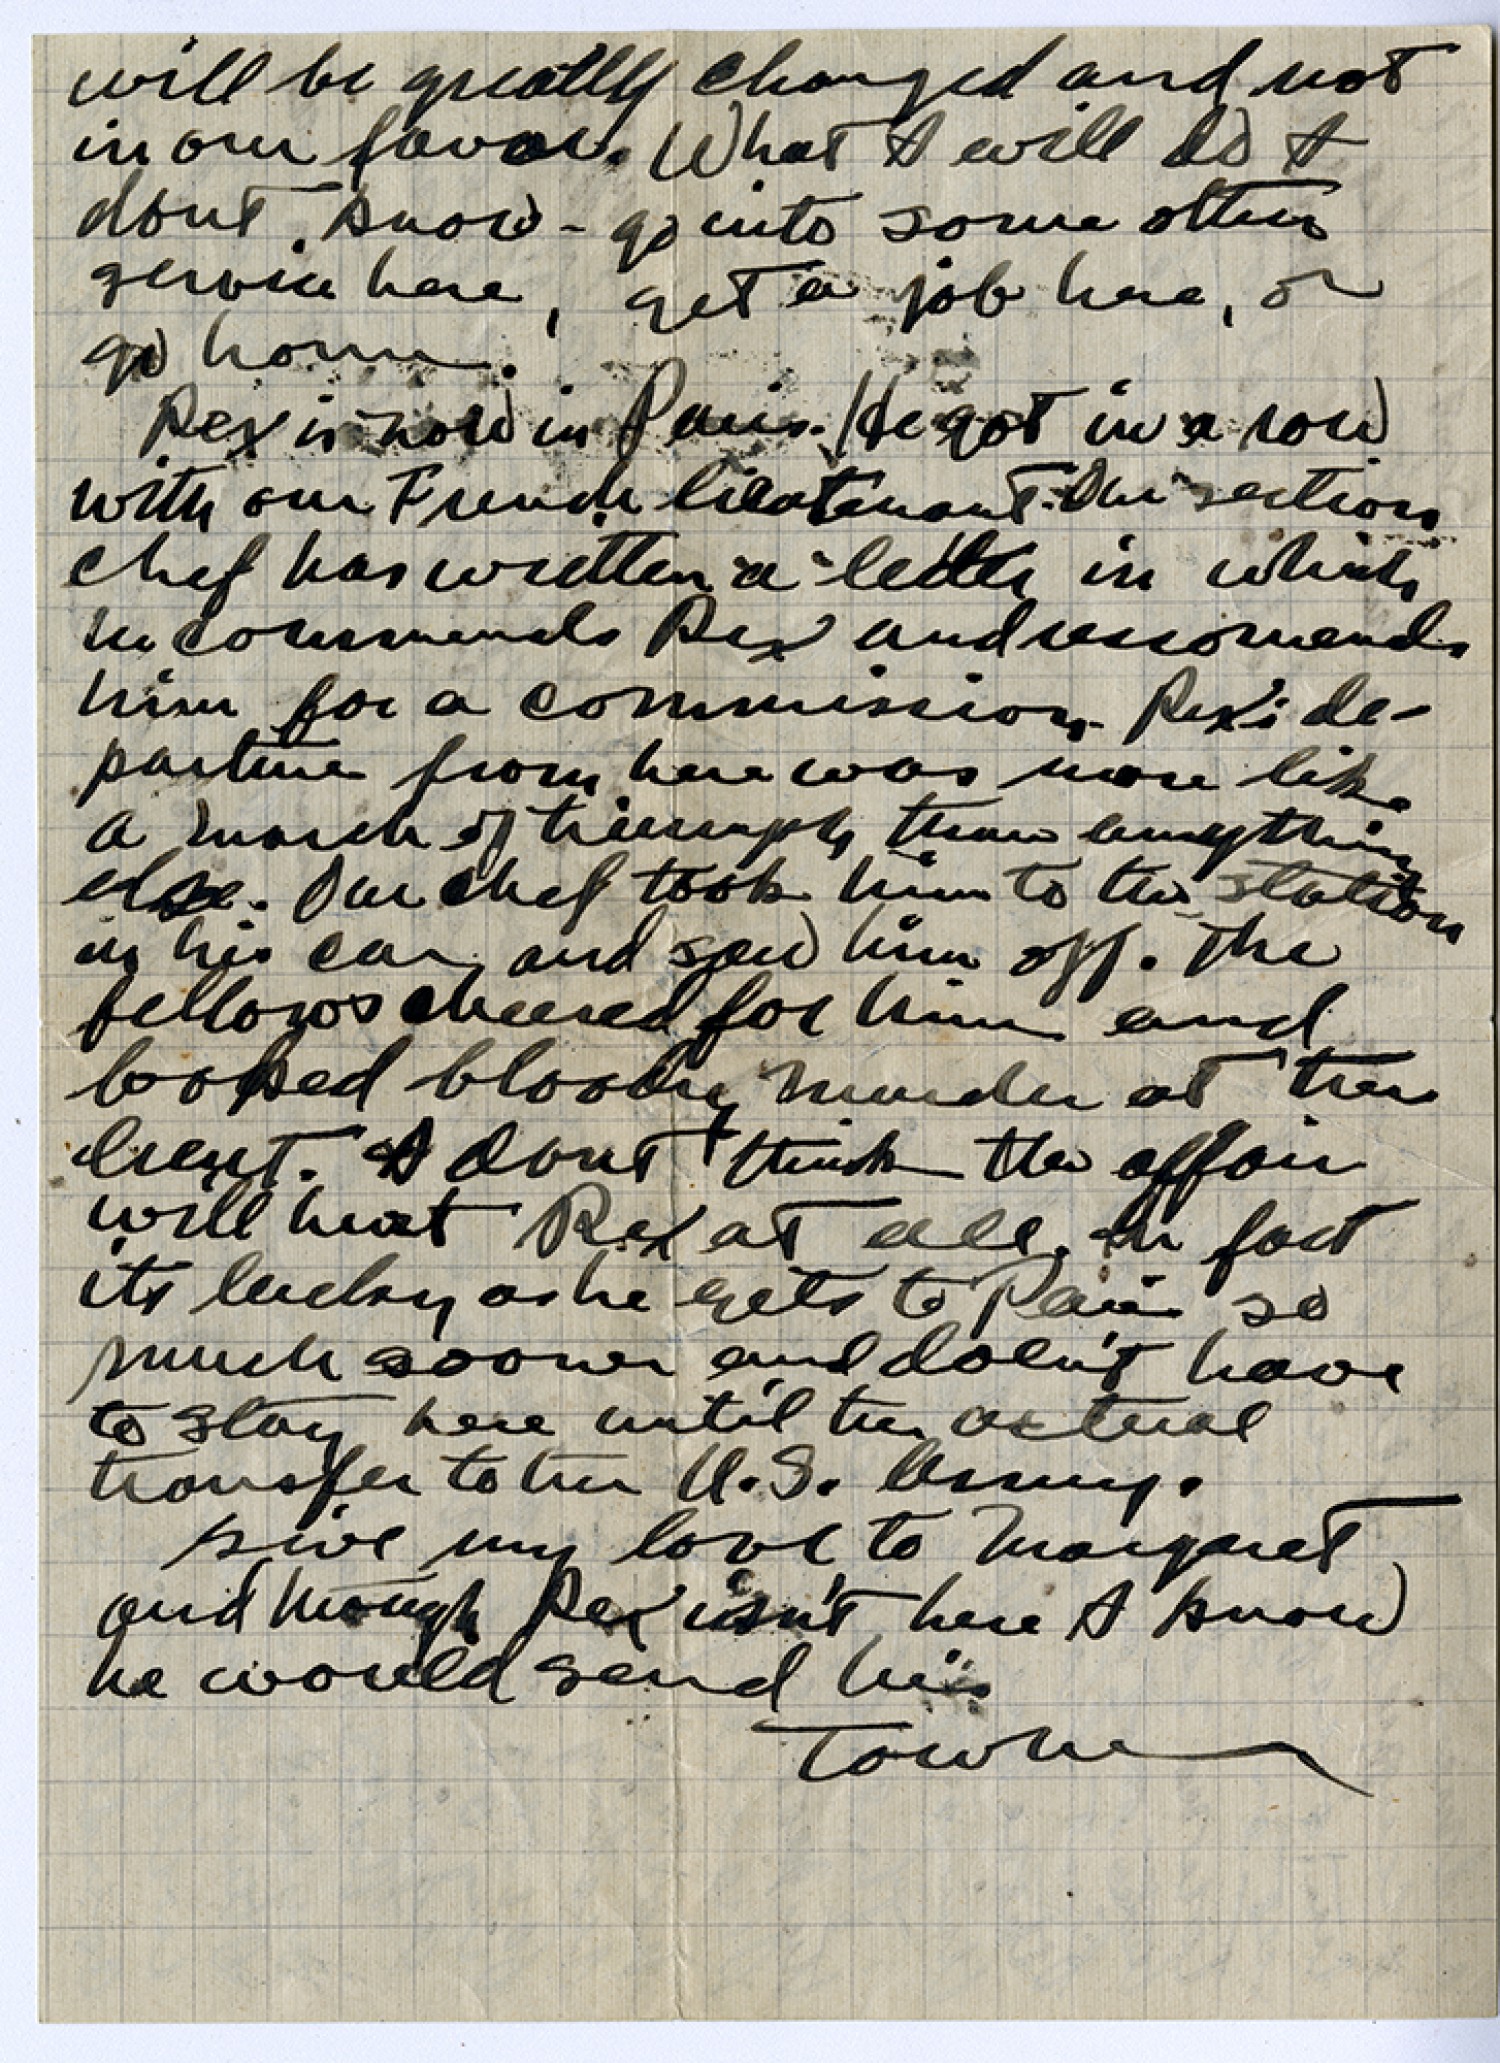 will be greatly changed and not
in our favor. What I will do I
dont know - go into some other
service here, get a job here, or
go home.
Rex is now in Paris. He got in a row
with our French lieutenant. Our section
chef has written a letter in which
he commends Rex and reccomends
him for a commission. Rex's de-
parture from here was more like
a march of triumph than anything
else. Our chef took him to the station
in his car and saw him off. The
fellows cheered for him and
booed bloody murder at the
lieut. I dont think the affair
will hurt Rex at all. In fact
its lucky as he gets to Paris so
much sooner and doesn't have
to stay here until the actual
transfer to the U.S. Army.
Give my love to Margaret
and though Rex isn't here I know
he would send his
Towne